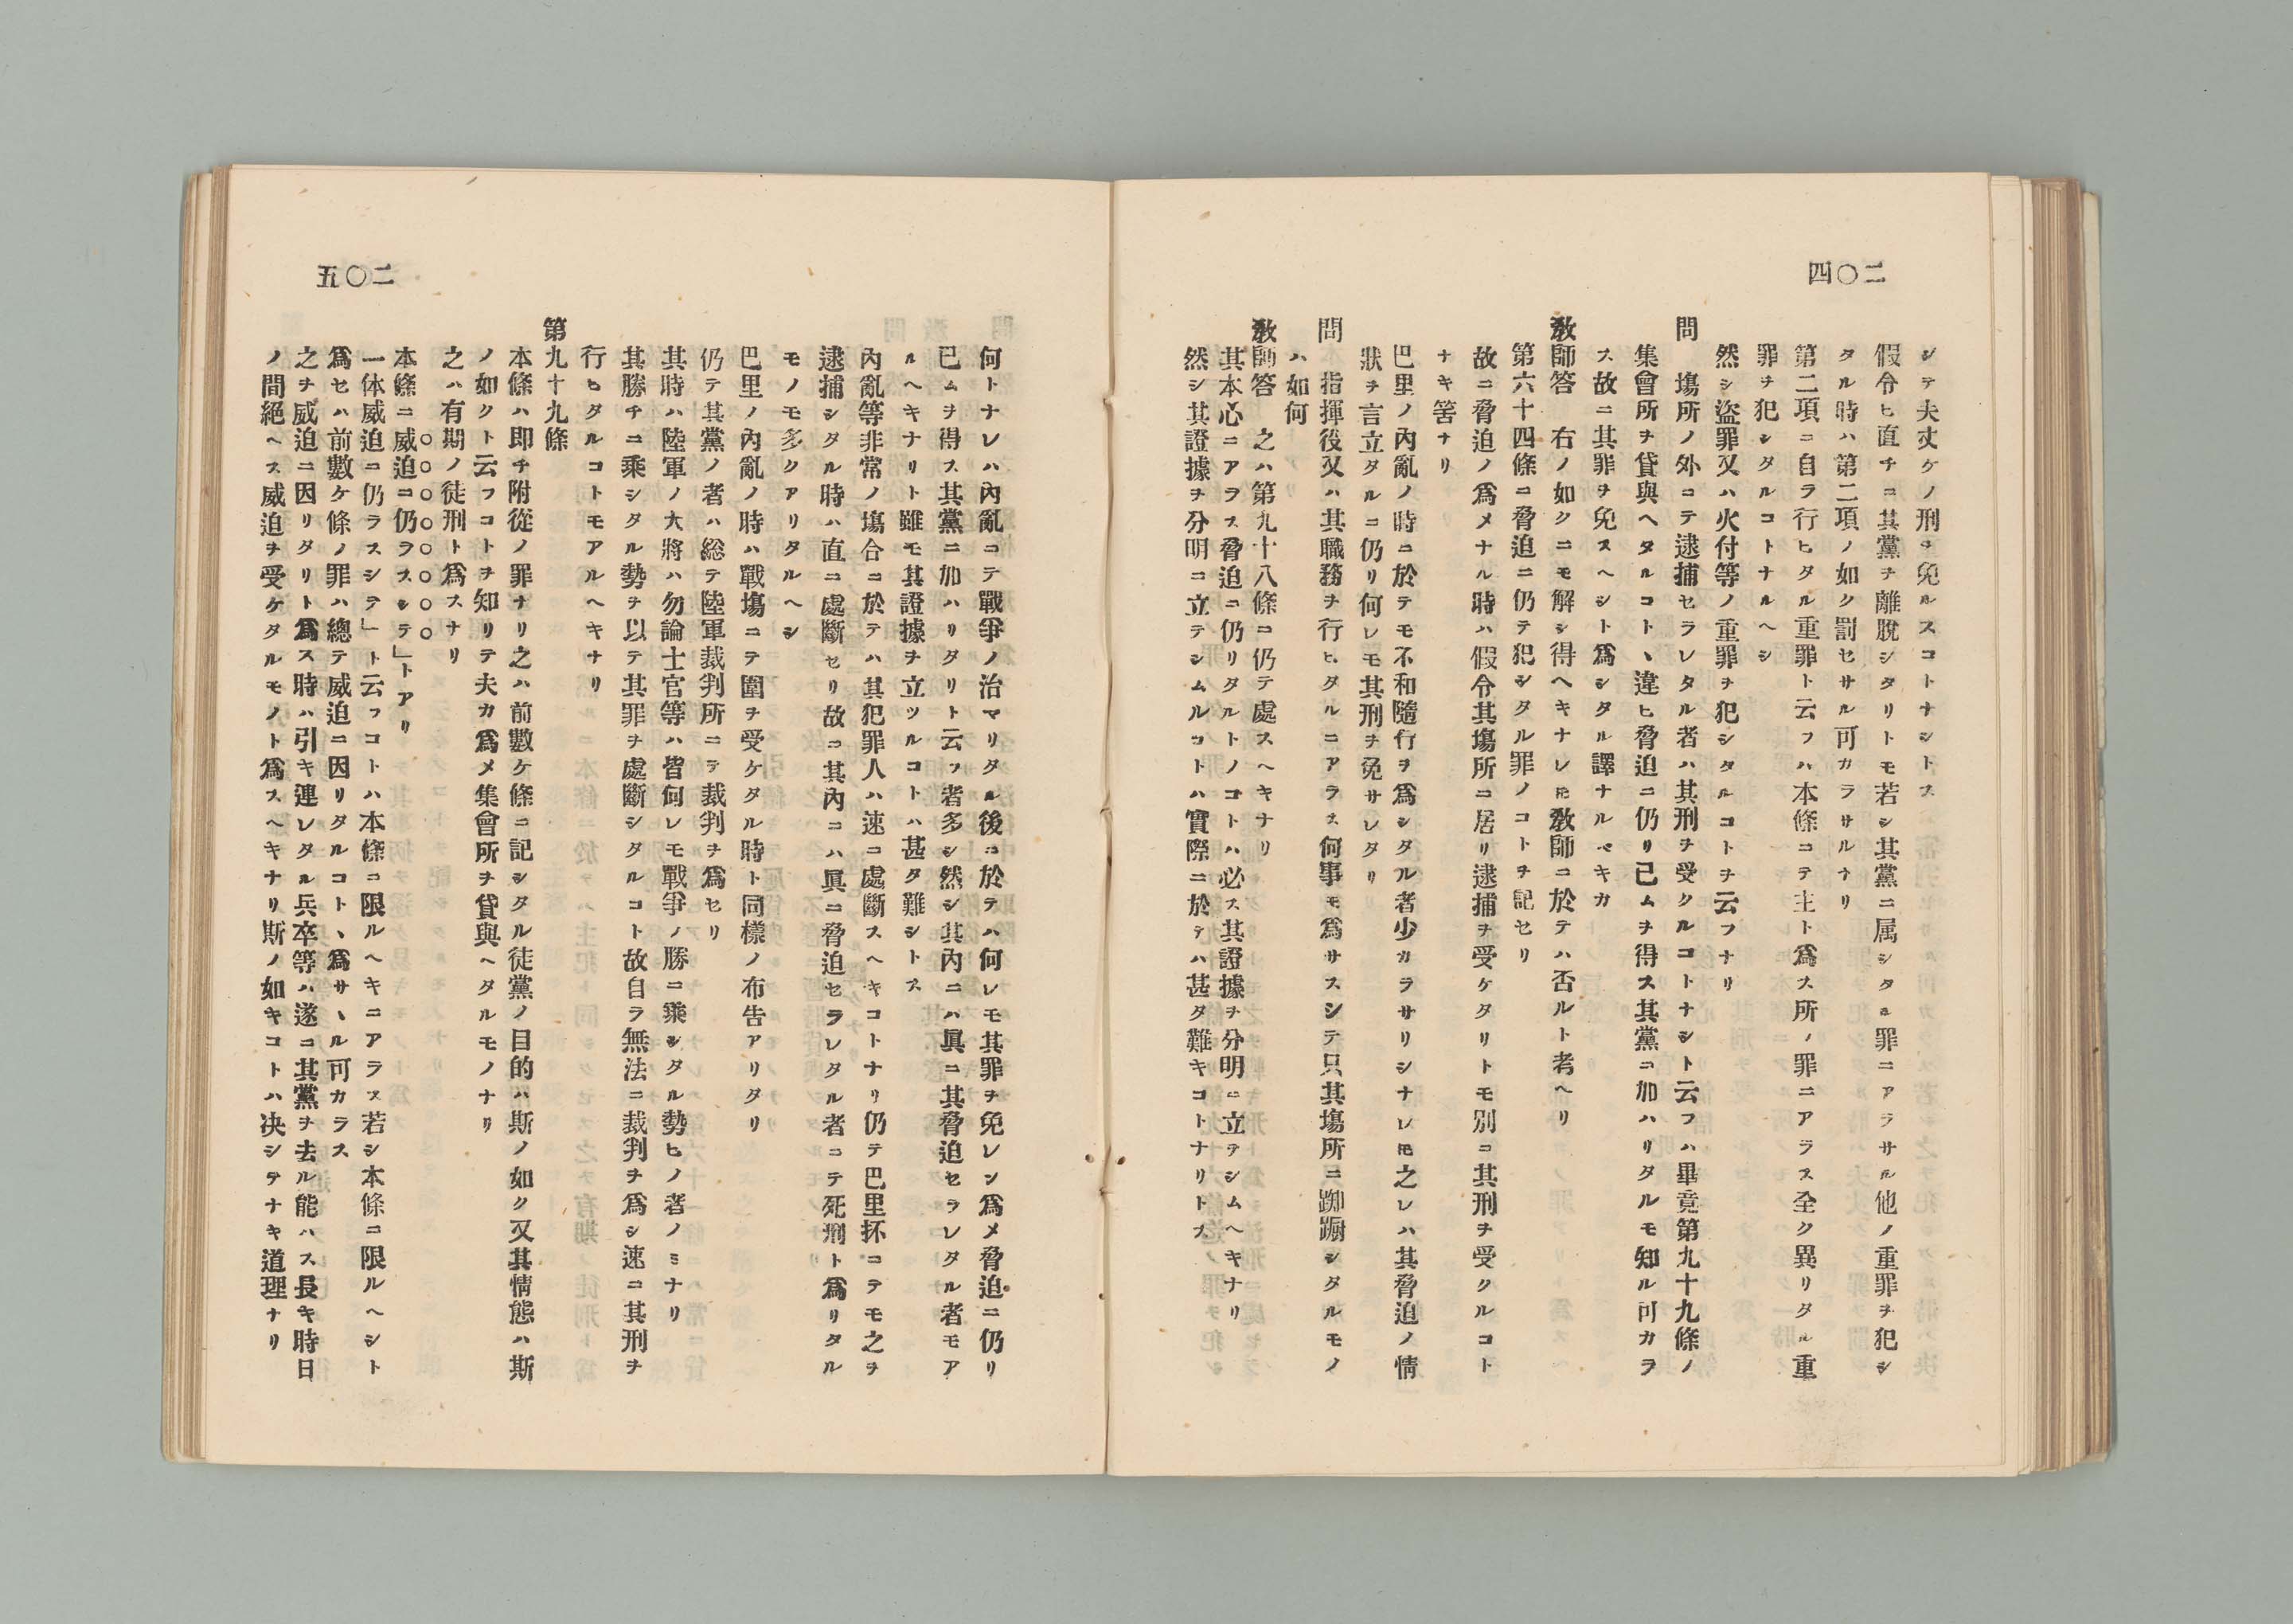 二〇四
シテ夫丈ケノ刑ヲ免ルスコトナシトス
假令ヒ直チニ其黨ヲ離脫シタリトモ若シ其黨ニ属シタル罪ニアラサル他ノ重罪ヲ犯シ
タル時ハ第二項ノ如ク罰セサル可カラサルナリ
第二項ニ自ラ行ヒタル重罪ト云フハ本條ニテ主ト為ス所ノ罪ニアラス全ク異リタル重
罪ヲ犯シタルコトナルヘシ
然シ盜罪又ハ火付等ノ重罪ヲ犯シタルコトヲ云フナリ
問　塲所ノ外ニテ逮捕セラレタル者ハ其刑ヲ受クルコトナシト云フハ畢竟第九十九條ノ
集會所ヲ貸與ヘタルコトヽ違ヒ脅迫ニ仍リ已ムヲ得ス其黨ニ加ハリタルモ知ル可カラ
ス故ニ其罪ヲ免スヘシト為シタル譯ナルベキカ
敎師答　右ノ如クニモ解シ得ヘキナレ𪜈敎師ニ於テハ否ルト考ヘリ
第六十四條ニ脅迫ニ仍テ犯シタル罪ノコトヲ記セリ
故ニ脅迫ノ為メナル時ハ假令其塲所ニ居リ逮捕ヲ受ケタリトモ別ニ其刑ヲ受クルコト
ナキ筈ナリ
巴里ノ內亂ノ時ニ於テモ不和隨行ヲ為シタル者少カラサリシナレ𪜈之レハ其脅迫ノ情
狀ヲ言立タルニ仍リ何レモ其刑ヲ免サレタリ
問　指揮役又ハ其職務ヲ行ヒタルニアラス何事モ為サスシテ只其塲所ニ踟蹰シタルモノ
ハ如何
敎師答　之ハ第九十八條ニ仍テ處スヘキナリ
其本心ニアラス脅迫ニ仍リタルトノコトハ必ス其證據ヲ分明ニ立テシムヘキナリ
然シ其證據ヲ分明ニ立テシムルコトハ實際ニ於テハ甚タ難キコトナリトス
二〇五
何トナレハ內亂ニテ戰爭ノ治マリタル後ニ於テハ何レモ其罪ヲ免レン為メ脅迫ニ仍リ
已ムヲ得ス其黨ニ加ハリタリト云フ者多シ然シ其內ニハ眞ニ其脅迫セラレタル者モア
ルヘキナリト雖モ其證據ヲ立ツルコトハ甚タ難シトス
內亂等非常ノ塲合ニ於テハ其犯罪人ハ速ニ處斷スヘキコトナリ仍テ巴里抔ニテモ之ヲ
逮捕シタル時ハ直ニ處斷セリ故ニ其內ニハ眞ニ脅迫セラレタル者ニテ死刑ト為リタル
モノモ多クアリタルヘシ
巴里ノ內亂ノ時ハ戰塲ニテ圍ヲ受ケタル時ト同樣ノ布告アリタリ
仍テ其黨ノ者ハ総テ陸軍裁判所ニテ裁判ヲ為セリ
其時ハ陸軍ノ大將ハ勿論士官等ハ皆何レモ戰爭ノ勝ニ乘シタル勢ヒノ者ノミナリ
其勝チニ乘シタル勢ヲ以テ其罪ヲ處斷シタルコト故自ラ無法ニ裁判ヲ為シ速ニ其刑ヲ
行ヒタルコトモアルヘキナリ
第九十九條
本條ハ即チ附從ノ罪ナリ之ハ前數ケ條ニ記シタル徒黨ノ目的ハ斯ノ如ク又其情態ハ斯
ノ如クト云フコトヲ知リテ夫カ為メ集會所ヲ貸與ヘタルモノナリ
之ハ有期ノ徒刑ト為スナリ
本條ニ威迫ニ仍ラスシテ」トアリ
一体威迫ニ仍ラスシテ」ト云フコトハ本條ニ限ルヘキニアラス若シ本條ニ限ルヘシト
為セハ前數ケ條ノ罪ハ總テ威迫ニ因リタルコトヽ為サヽル可カラス
之ヲ威迫ニ因リタリト為ス時ハ引キ連レタル兵卒等ハ遂ニ其黨ヲ去ル能ハス長キ時日
ノ間絕ヘス威迫ヲ受ケタルモノト為スヘキナリ斯ノ如キコトハ决シテナキ道理ナリ